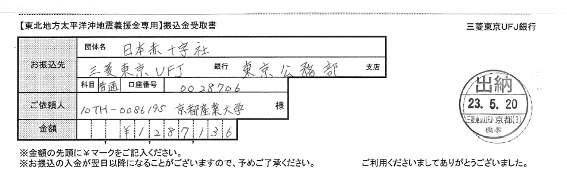 【東北地方太平洋沖地震義援金専用】振込金受取書
三菱東京UFJ銀行
お振込先
団体名 日本赤十字社
三菱東京UFJ 銀行 東京公務部 支店
科目 普通 口座番号 0028706
ご依頼人 10TH-0086195 京都産業大学 様
金額 ¥1287136
出納
23.5.20
三菱東京UFJ 京都(3)
橋本
※金額の先頭に¥マークをご記入ください。
※お振込の入金が翌日以降になることがございますので、予めご了承ください。 ご利用くださいましてありがとうございました。